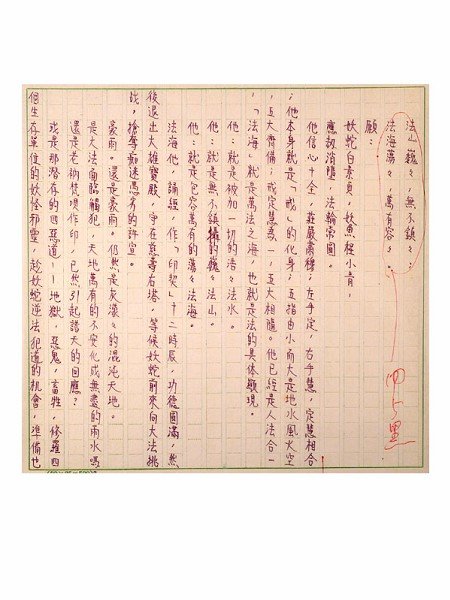 法山巍々，無不鎮々；
法海蕩々，萬有容々。
願：
妖蛇白素貞，妖魚程小青，
應報消墮，法輪常圓。
他信心十全，莊嚴肅穆，左手定，右手慧，定慧相合
；他本身就是「戒」的化身，五指由小而大是地水風火空
，五大齊備；戒定慧一，五大相隨。他已經是人法合一
，「法海」就是萬法之海，也就是法的具体顯現。
他：就是被加一切的浩々法水。
他：就是無不鎮攝的巍々法山。
他：就是包容萬有的蕩々法海。
法海他，誦經、作印「印契」十二時辰，功德圓滿，然
後退出大雄寶殿，守在慈壽右塔，等候妖蛇前來向大法挑
戰，搶奪痴迷愚劣的許宣。
豪雨。還是豪雨。仍然是灰濛々的混沌天地。
是大法面臨觸犯，天地萬有的不安化成無盡的雨水嗎
還是老衲梵唄作印，已然引起諸天的回應？
或是那潛存的四惡道——地獄，惡鬼，畜牲，修羅四
個生存單位的妖怪邪靈，趁妖蛇逆法犯道的機會，準備也